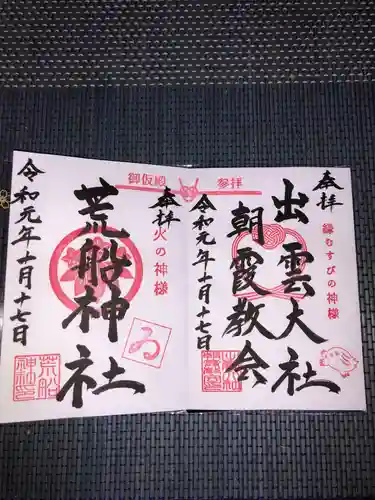 御仮殿 参拝
奉拝
縁むすびの神様
出雲大社
朝霞教会
令和元年十月十七日
奉拝
火の神様
荒船神社
ゐ
令和元年十月十七日
荒船
神社印